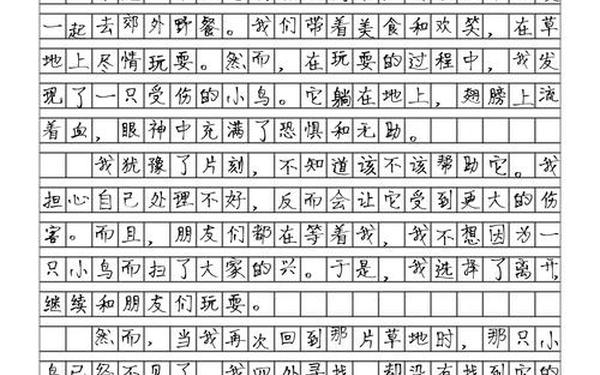 一起去郊外野餐。我们带着美食和欢笑，在草
地上尽情玩耍。然而，在玩耍的过程中，我发
现了一只受伤的小鸟。它躺在地上，翅膀上流
着血，眼神中充满了恐惧和无助。
我犹豫了片刻，不知道该不该帮助它。我
担心自己处理不好，反而会让它受到更大的伤
害。而且，朋友们都在等着我，我不想因为一
只小鸟而扫了大家的兴。于是，我选择了离开
继续和朋友们玩耍。
然而，当我再次回到那片草地时，那只小
鸟已经不见了。我四处寻找，却没有找到它的